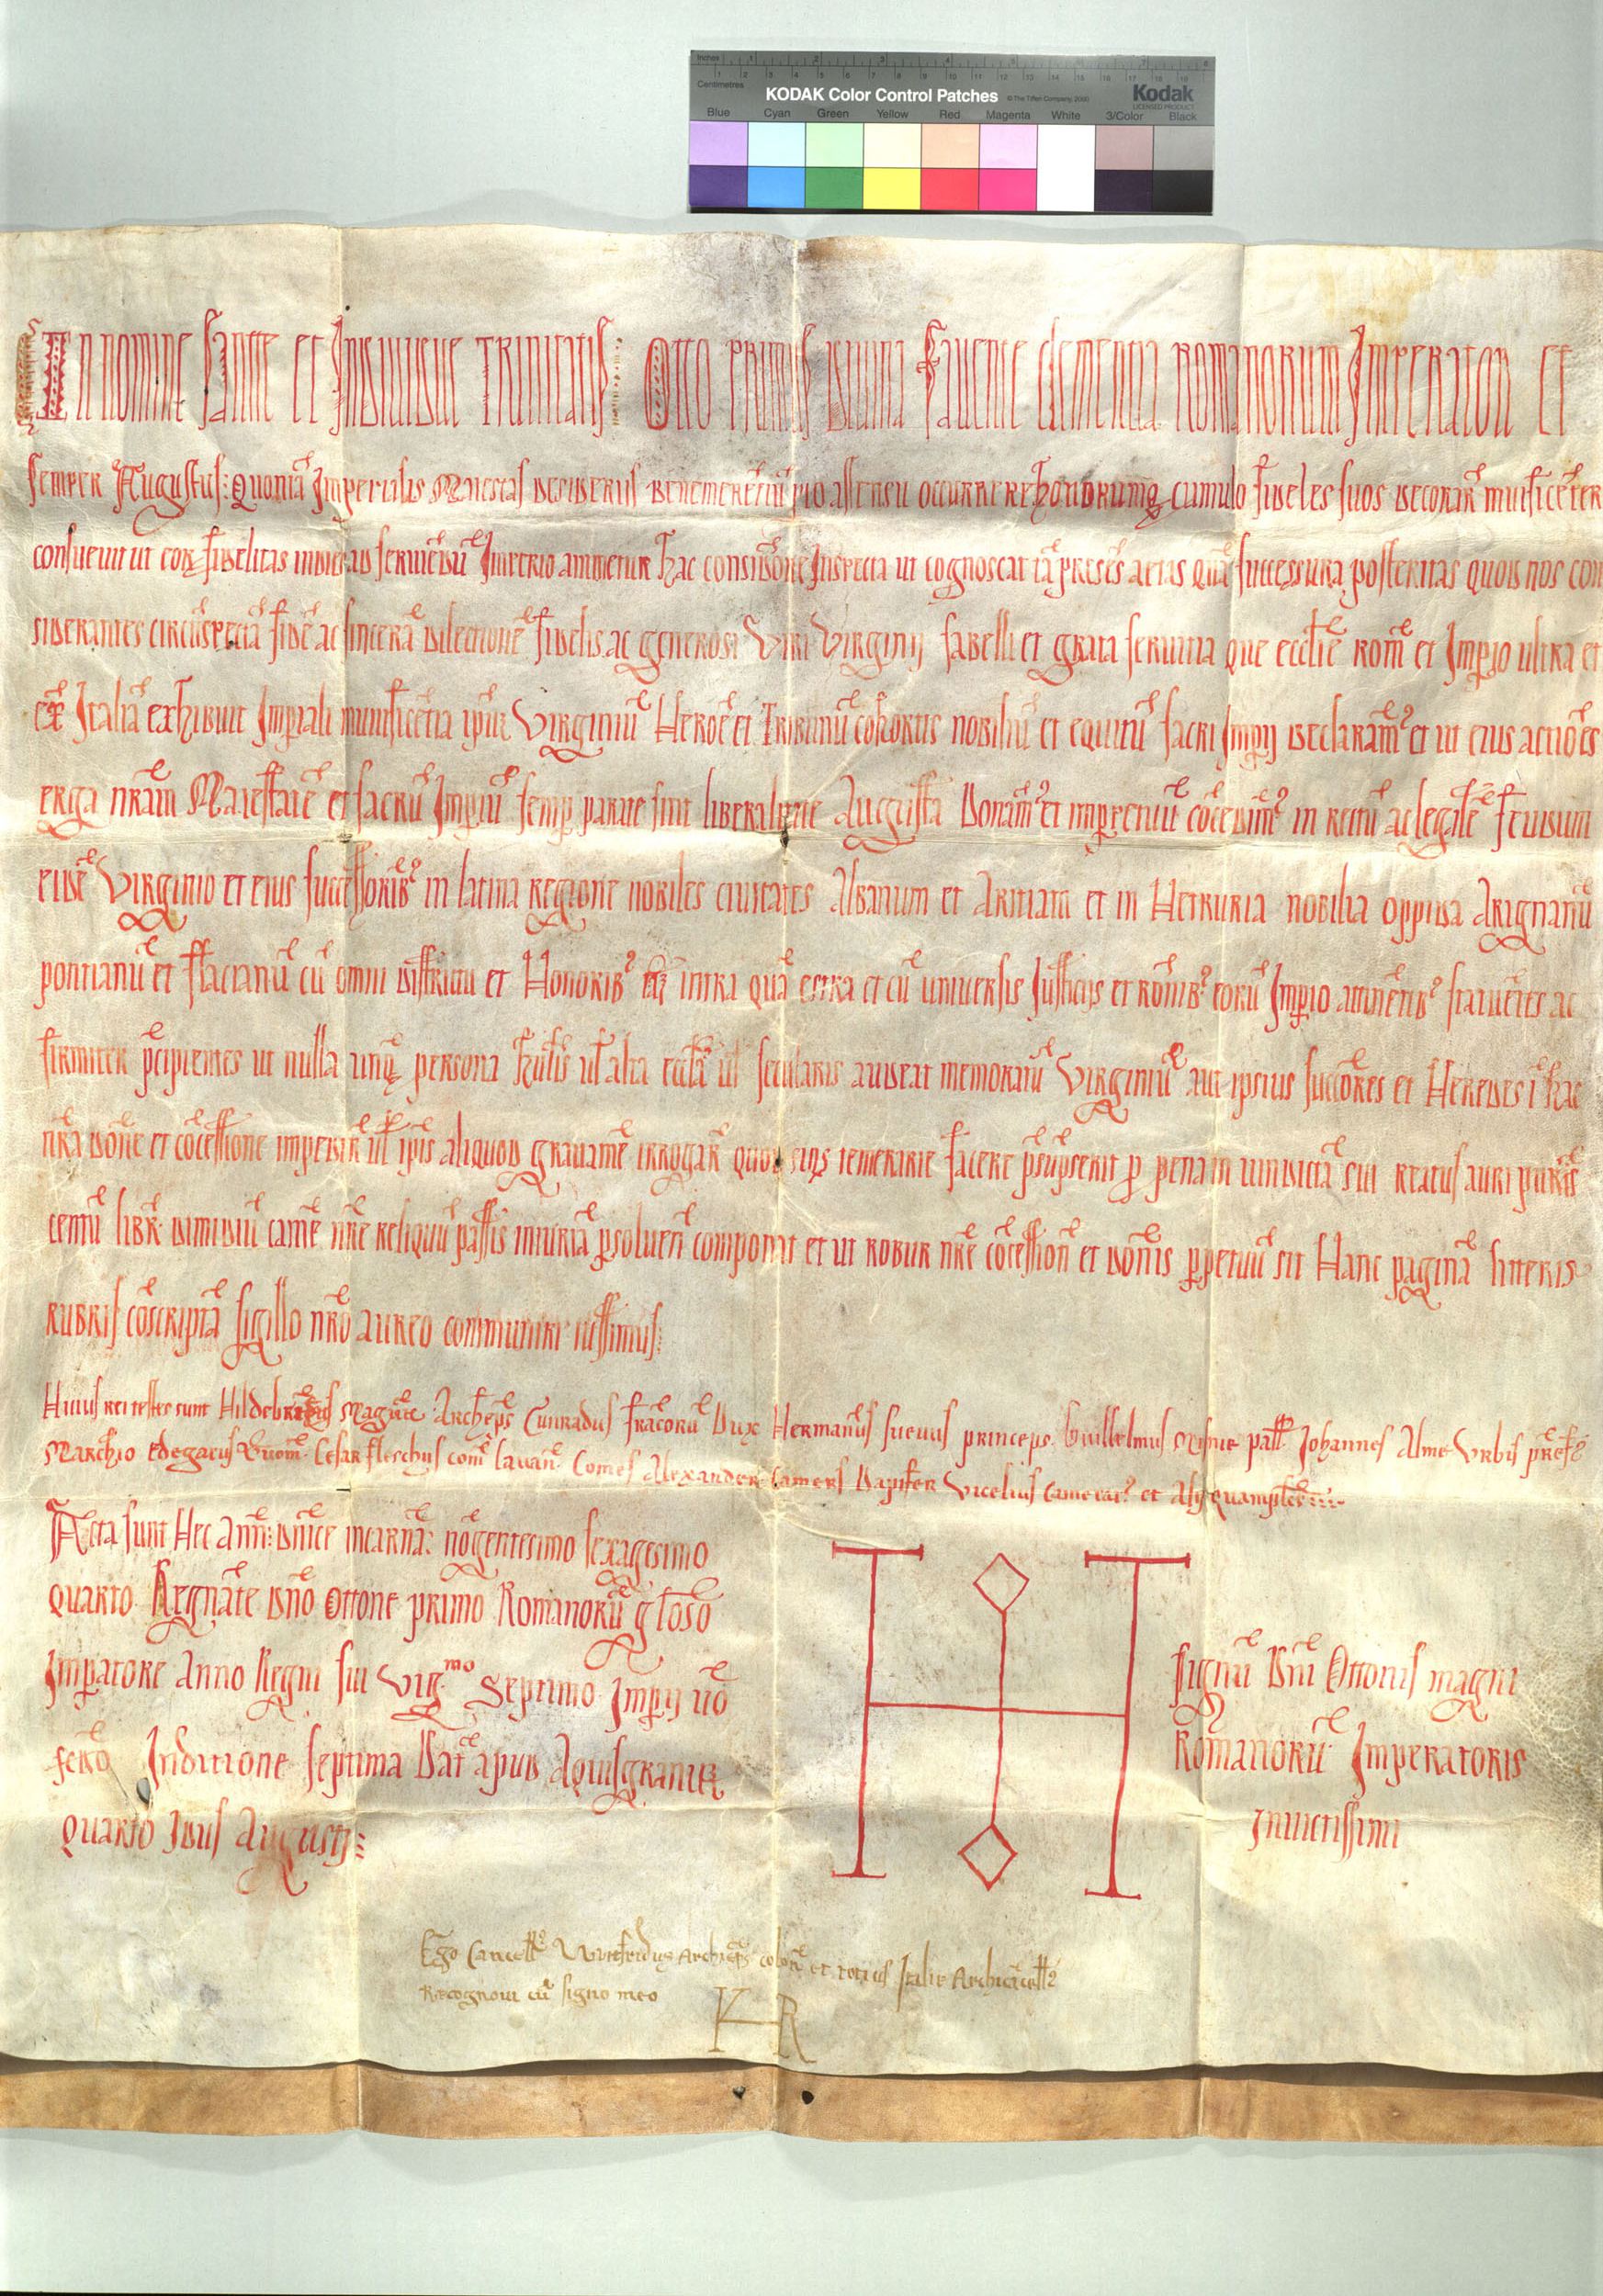 Inches 1 2 3 4 5 6 7 8
Centimetres 1 2 3 4 5 6 7 8 9 10 11 12 13 14 15 16 17 18 19
KODAK Color Control Patches © The Tiffen Company, 2000 Kodak
LICENSED PRODUCT
Blue Cyan Green Yellow Red Magenta White 3/Color Black
In nomine sancte et Individue trinitatis: Otto primus divina favente clementia romanorum Imperator et
semper Augustus: Quoniā Imperialis Maiestas desideriis benemerētiū pio assensu occurrere honorumq cumulo fideles suos decorar̄ munificēter
consuevit ut eoꝝ fidelitas indies ad serviēdū Imperio animetur hac consideōne Inspecta ut cognoscat tā presēs aetas quā successura posteritas quod nos con
siderantes circūspectā fidē ac sincerā dilectionē fidelis ac generosi Viri Virginij sabelli et grata servitia que ecclīe rom̄ et Imp̄io ultra et
ex̄ Italiā exhibuit Imp̄iali munificētia ip̄m Virginiū Heroē et Tribunū cohortis nobiliū et equitū sacri Imp̄ij declaram̄ et ut eius actiōēs
erga nr̄am Maiestatē et sacrū Imp̄iū semp̄ parate sint liberalitate Augusta Donam̄ et imp̄petuū cōcedim̄ in rectū ac legalē feudum
eidē Virginio et eius successorib̄ in latina regione nobiles civitates Albanum et Aritiam et in Hetruria nobilia oppida Arignanū
pontianū et flacianū cū omni districtu et Honorib̄ intra quā extra et cū universis Justiciis et rōnib̄ eorū Imp̄io attinētib̄ statuētes ac
firmiter p̄cipientes ut nulla unq̄ persona hūilis ul̄ alta ecclā ul̄ secularis audeat memoratū Virginiū aut ipsius succōres et Heredes ī hac
nr̄a dōne et cōcessione impedir̄ ul̄ ip̄is aliquod gravamē irrogar̄ quod siqs temerarie facere p̄sūpserit p̄ pena in vindictā sui reatus auri puris
centū libr̄ dimidiū camē nr̄e reliquū passis iniuriā p̄solven̄ componat et ut robur nr̄e cōcession̄ et dōnis p̄petuū sit Hanc paginā litteris
rubris cōscriptā sigillo nr̄o aureo communiri iussimus:
Huius rei testes sunt Magūte Archep̄s Cunradus frācorū Dux Hermanus suevus princeps Guillelmus Misnie pall Johannes Alme Urbis pref̄
Marchio Edegarus Cesar fleschus com̄ lavan̄ Comes Alexander Camers Dapifer Vicelius Camerar̄ et Alij quamplr̄es
Acta sunt Hec ann̄: dn̄ice incarnā: nōgentesimo sexagesimo
quarto Regnāte dn̄o Ottone primo Romanorū gl̄oso
Imp̄atore Anno Regni sui vig.mo Septimo Imp̄ij v̄o
sc̄do Inditione septima Dat̄ apud Aquisgranu
quarto Idus Augusti
signū Dn̄i Ottonis magni
Romanorū Imperatoris
Invictissimi
Ego Cancell̄ Archiep̄s colon̄ et totius Italie Archicācell̄
Recognovi cū signo meo
K R